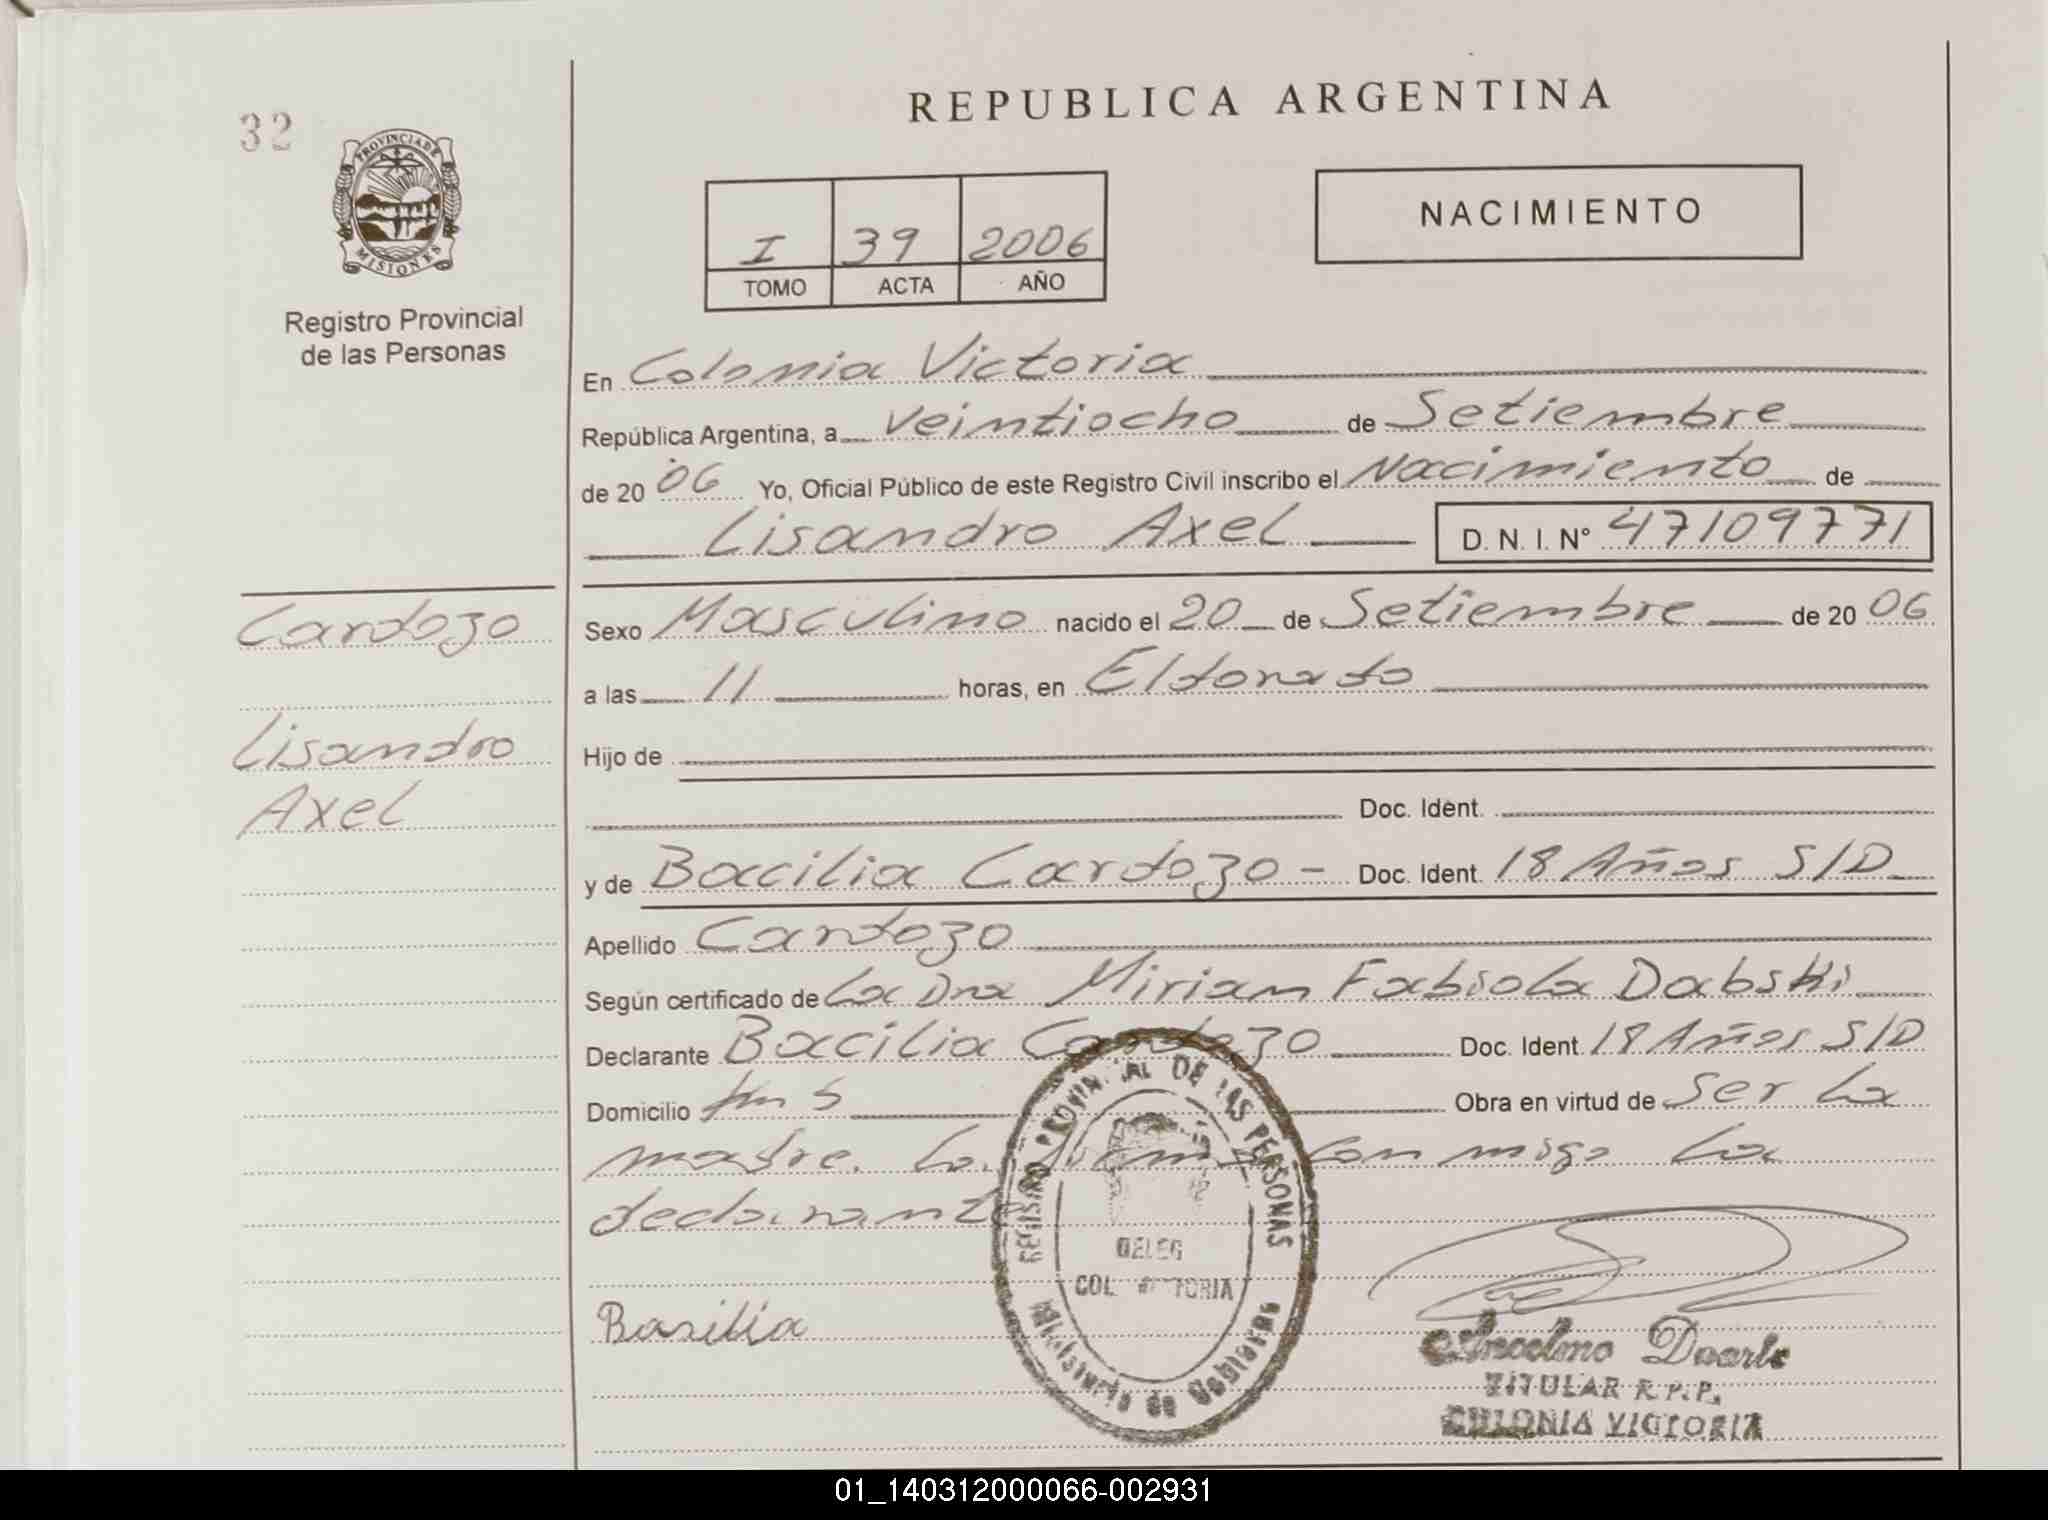 32
PROVINCIA DE
MISIONES
Registro Provincial
de las Personas
Cardozo
Lisandro
Axel
REPUBLICA ARGENTINA
NACIMIENTO
I 39 2006
TOMO ACTA AÑO
En Colonia Victoria
República Argentina, a veintiocho de Setiembre
de 20 06 Yo, Oficial Público de este Registro Civil inscribo el Nacimiento de
Lisandro Axel D. N. I. N° 47109771
Sexo Masculino nacido el 20 de Setiembre de 20 06
a las 11 horas, en Eldorado
Hijo de
Doc. Ident.
y de Bacilia Cardozo - Doc. Ident. 18 Años S/D
Apellido Cardozo
Según certificado de La Dra Miriam Fabiola Dabski
Declarante Bacilia Cardozo Doc. Ident. 18 Años S/D
Domicilio km 5 Obra en virtud de ser la
madre. conmigo La
declarante
Basilia
REGISTRO PROVINCIAL DE LAS PERSONAS
DELEG
COL. VICTORIA
Ministerio de Gobierno
Ancelmo Duarte
TITULAR R.P.P.
COLONIA VICTORIA
01_140312000066-002931